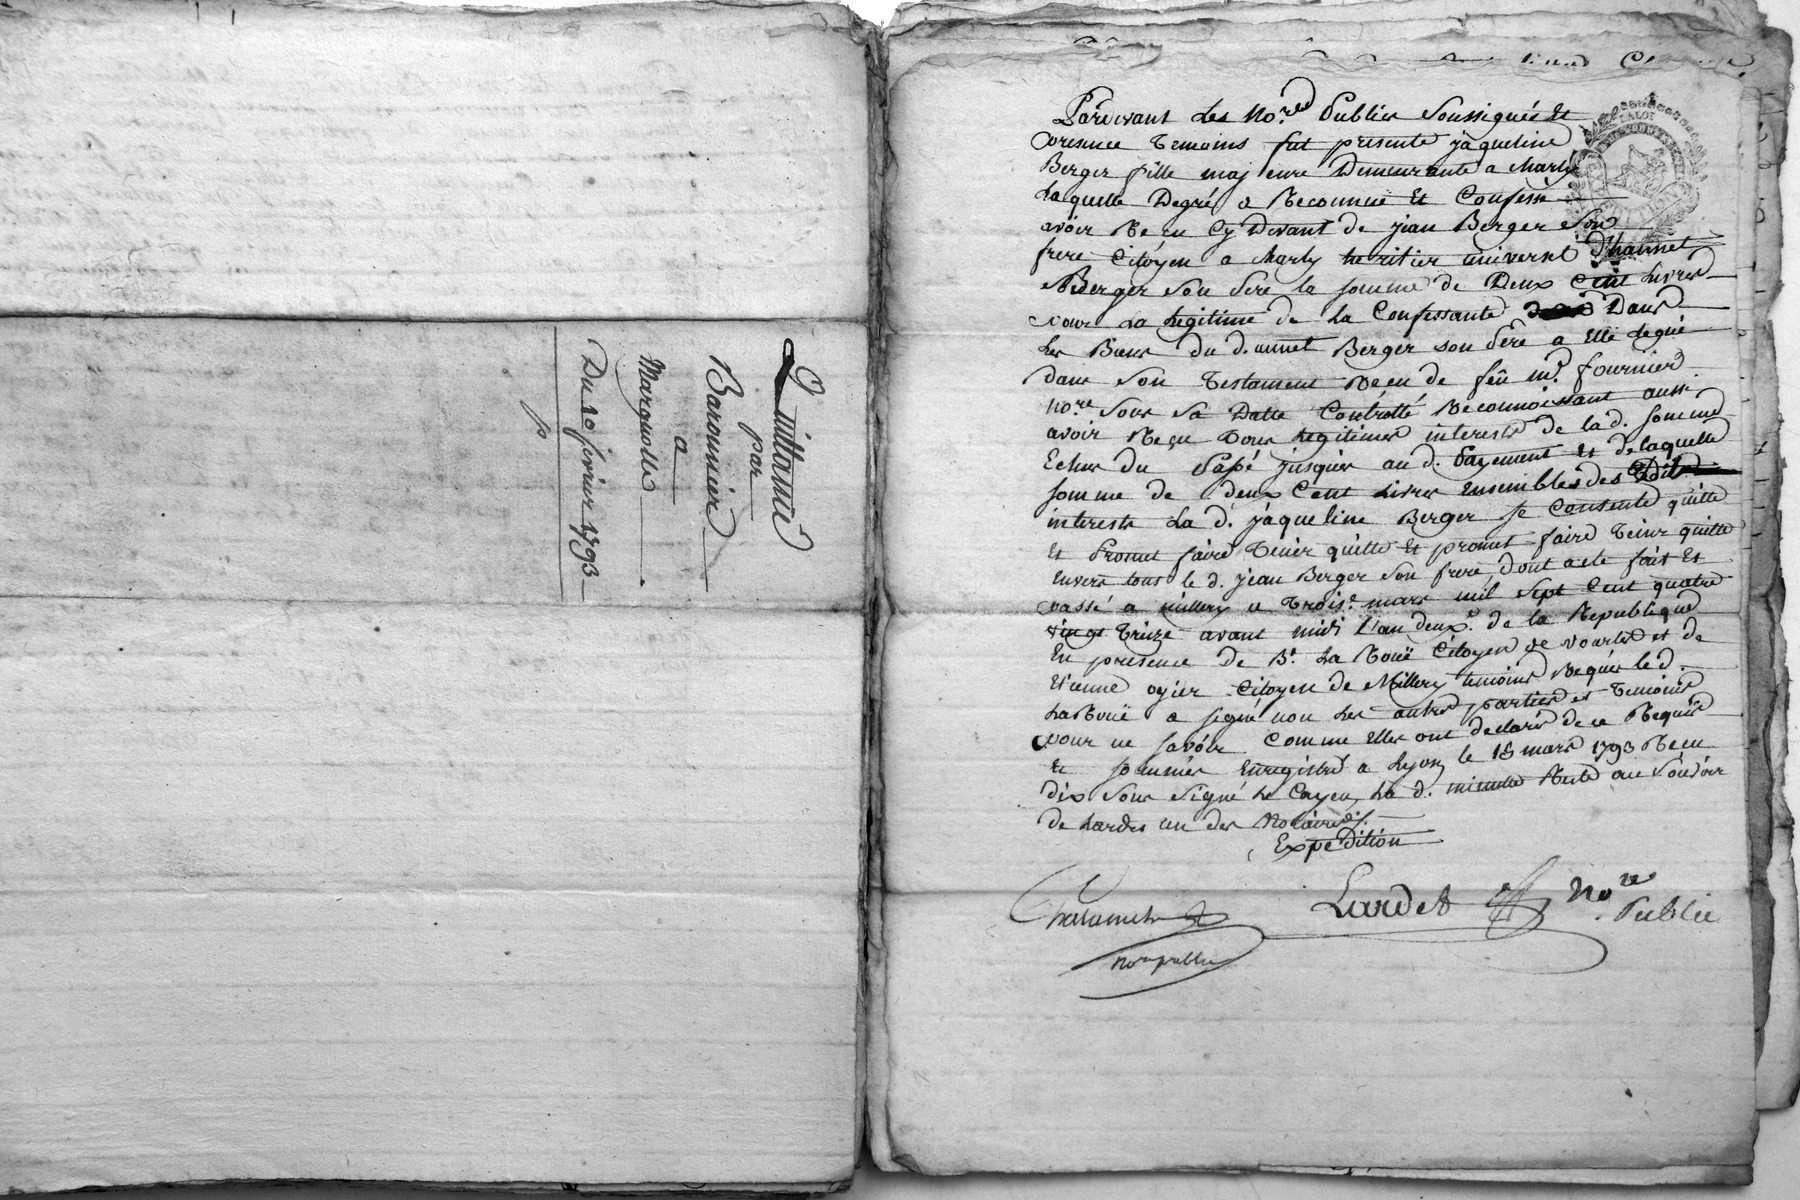 Quittance
par
Barounier
a
Marquolle
Du 10 fevrier 1793
Pardevant Les No.res Publics Soussignés Et
presence Temoins fut presente jaqueline
Berger fille majeure Demeurante a Charly
Laquelle Degré a Reconnue Et Confessé
avoir Reçu Cy Devant de jean Berger Son
frere Citoyen a Charly heritier universel D'hannet
Berger Son Pere la somme de Deux Cent Livres
pour La Legitime de La Confessante Dans
Les Biens Du d. annet Berger son Pere a Elle legué
dans Son Testament Reçu de feû m.e fournier
No.re Sous Sa Datte Controllé Reconnoissant aussi
avoir Reçu Tous Legitimes interests de la d. somme
Echus du Passé jusques au d. Payement Et de laquelle
somme de deux Cent Livres Ensembles des
interests La d. jaqueline Berger se Contente quitte
Et Promet faire Tenir quitte Et promet faire Tenir quitte
Envers tous le d. jean Berger Son frere, dont acte fait Et
passé a Millery Le Trois.e mars mil Sept Cent quatre
vingt Treize avant midi L'an deux.e de la Republique
En presence de B.t La Rouë Citoyen de Vourles et de
Etienne ogier Citoyen de Millery temoins Requis le d.
LaRouë a signé non Les autres parties et Temoins
pour ne sçavoir Comme Elles ont declaré de ce Requis
Et sommés Enregistré a Lyon le 15 mars 1793 Reçu
dix Sous Signé Le Cayeu, La d. minutte Resté au Pouvoir
de Lardet un des Notaires s.
Expedition
Lardet No.re
Public
Nore public